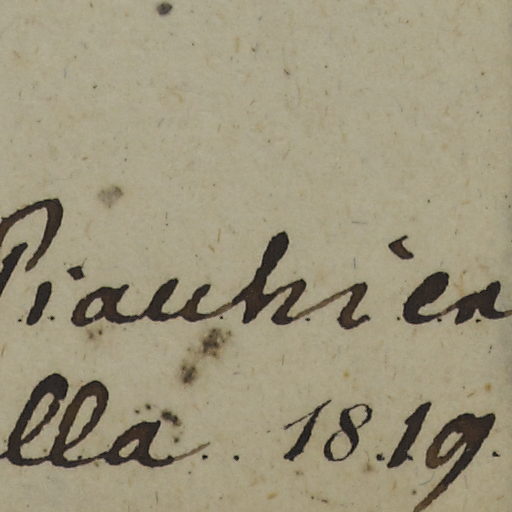 Piauhien
lla. . 1819.